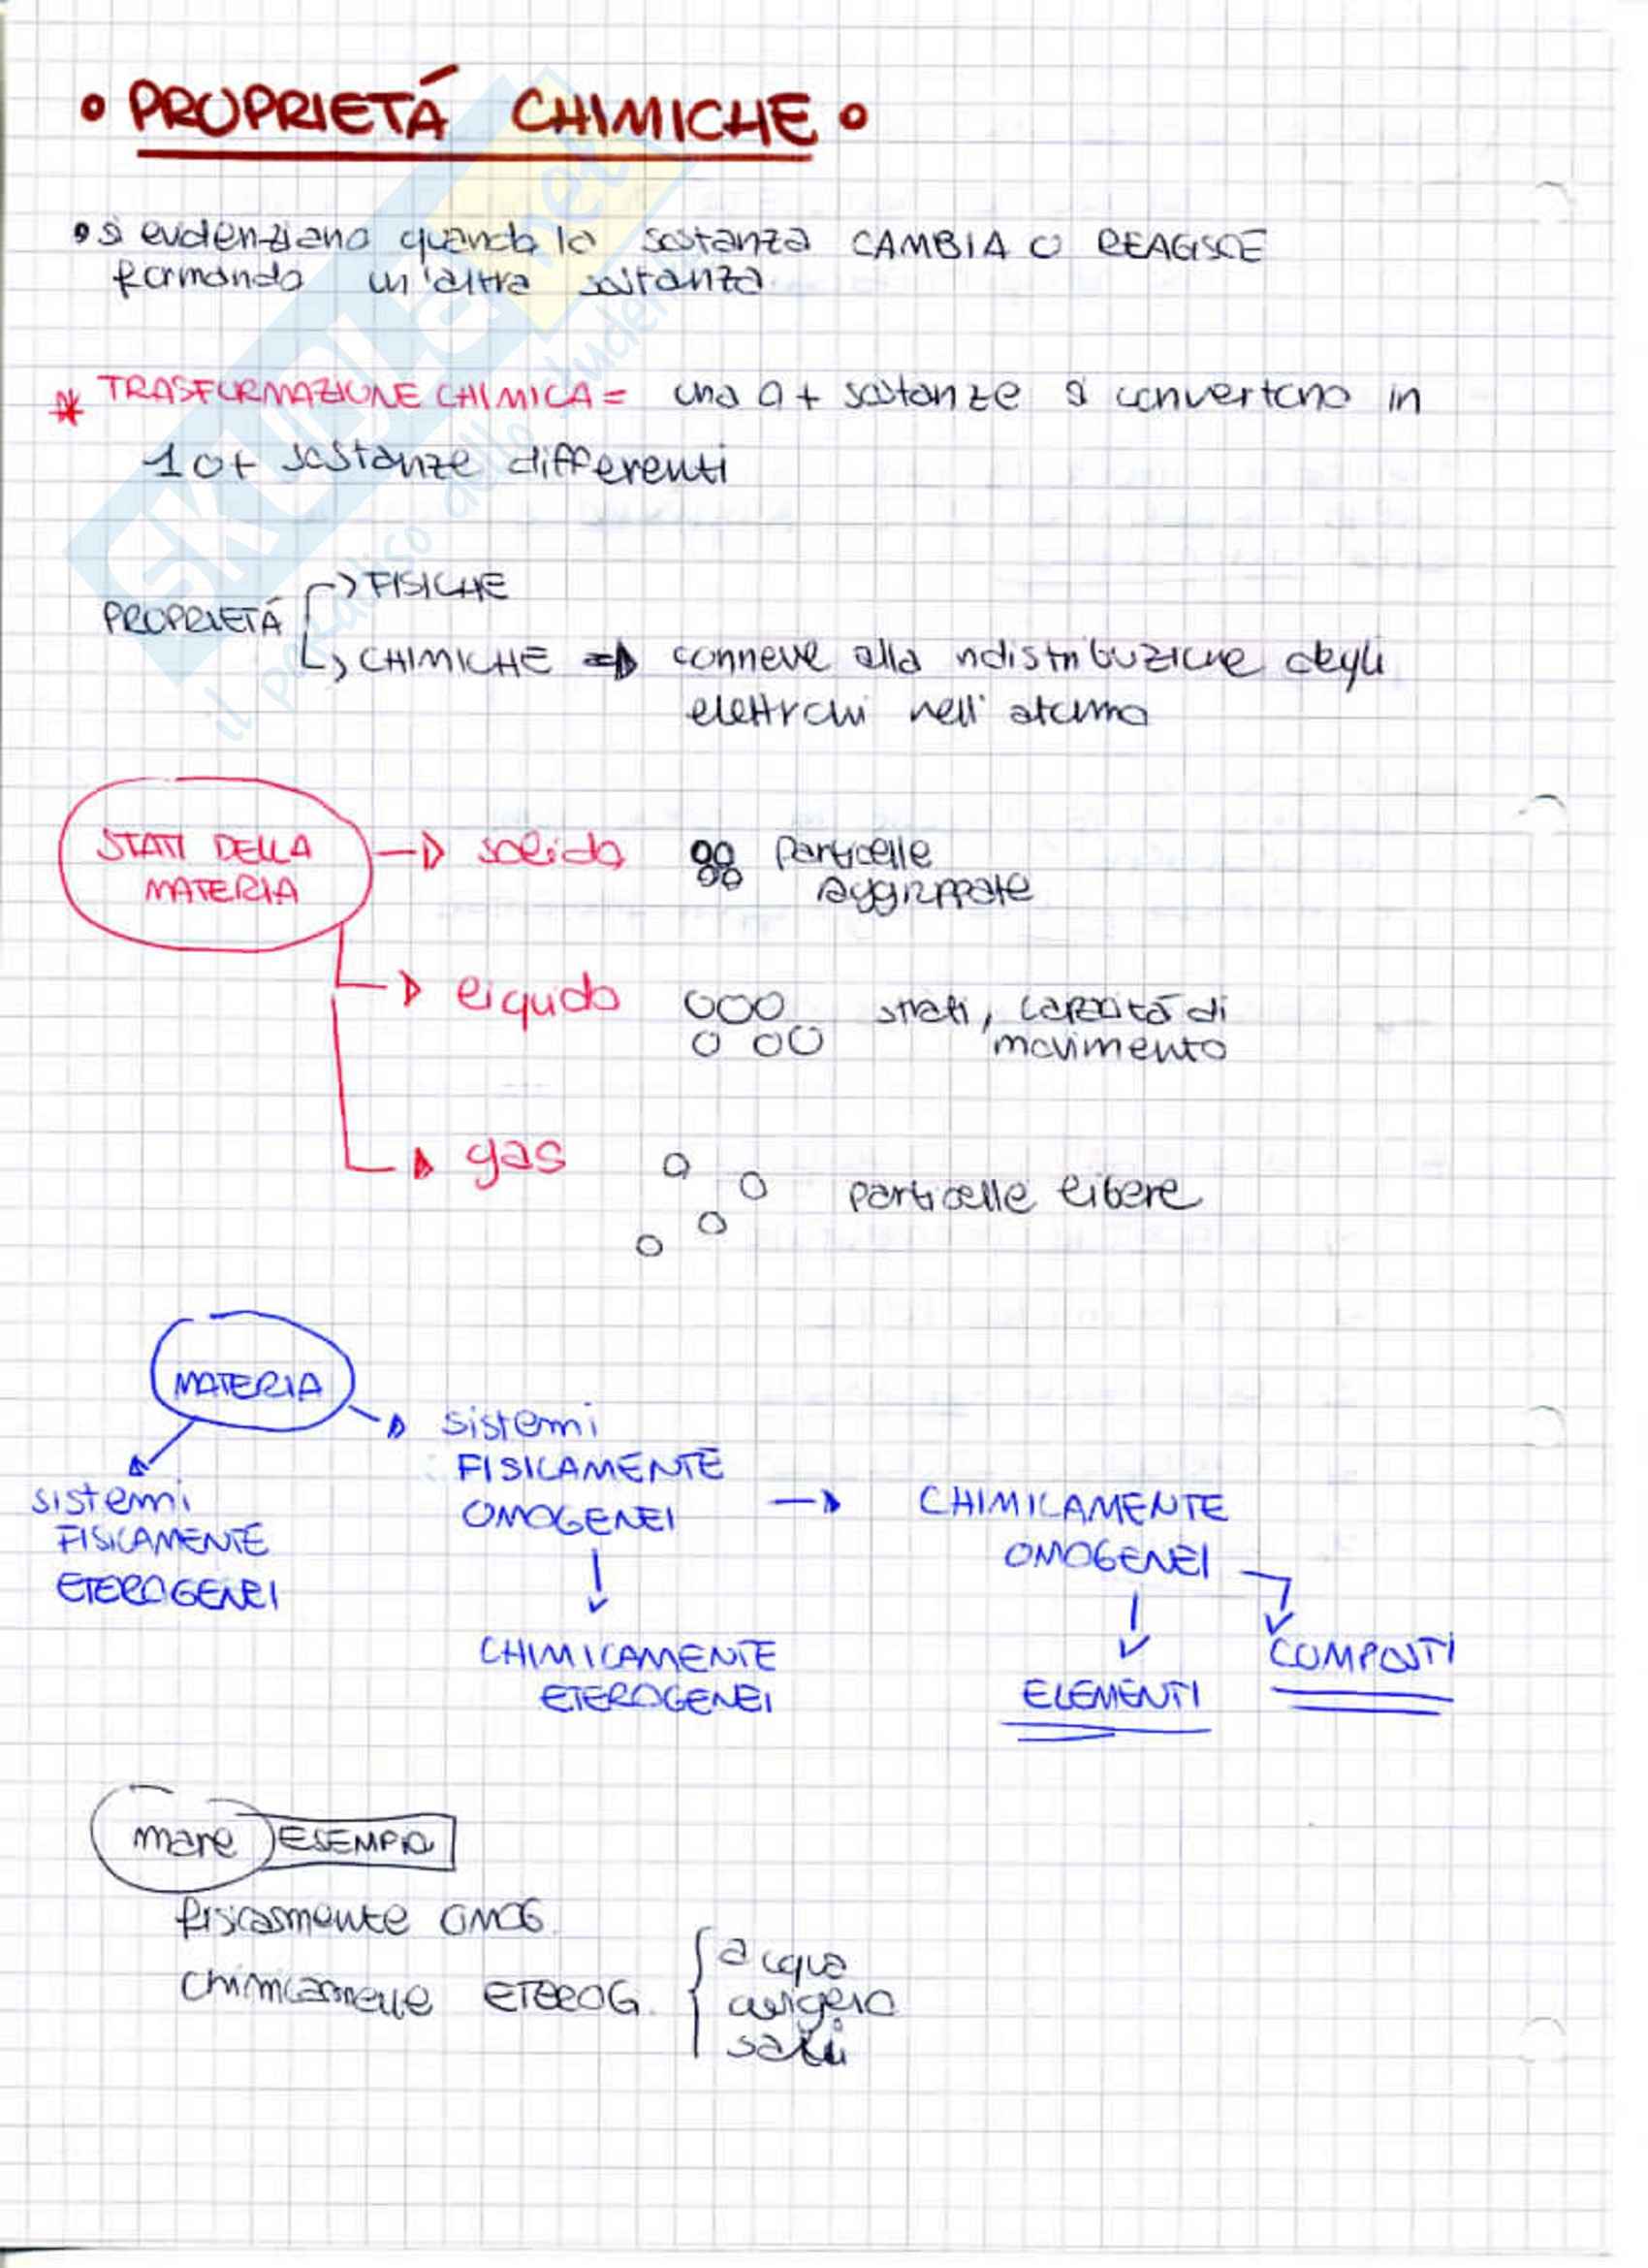 • PROPRIETÁ CHIMICHE •
• si evidenziano quando la sostanza CAMBIA O REAGISCE
formando un'altra sostanza.
* TRASFORMAZIONE CHIMICA = una o + sostanze si convertono in
1 o + sostanze differenti
PROPRIETÁ
-> FISICHE
-> CHIMICHE => connesse alla ridistribuzione degli
elettroni nell'atomo
STATI DELLA
MATERIA
-> solido particelle
aggruppate
-> liquido strati, capacitá di
movimento
-> gas
particelle libere
MATERIA
sistemi
FISICAMENTE
OMOGENEI
sistemi
FISICAMENTE
ETEROGENEI
-> CHIMICAMENTE
OMOGENEI
CHIMICAMENTE
ETEROGENEI
ELEMENTI
COMPOSTI
mare ESEMPIO
fisicasmente OMOG.
chimicamente ETEROG.
acqua
ossigeno
sali
SKUOLA.net
il paradiso dello studente